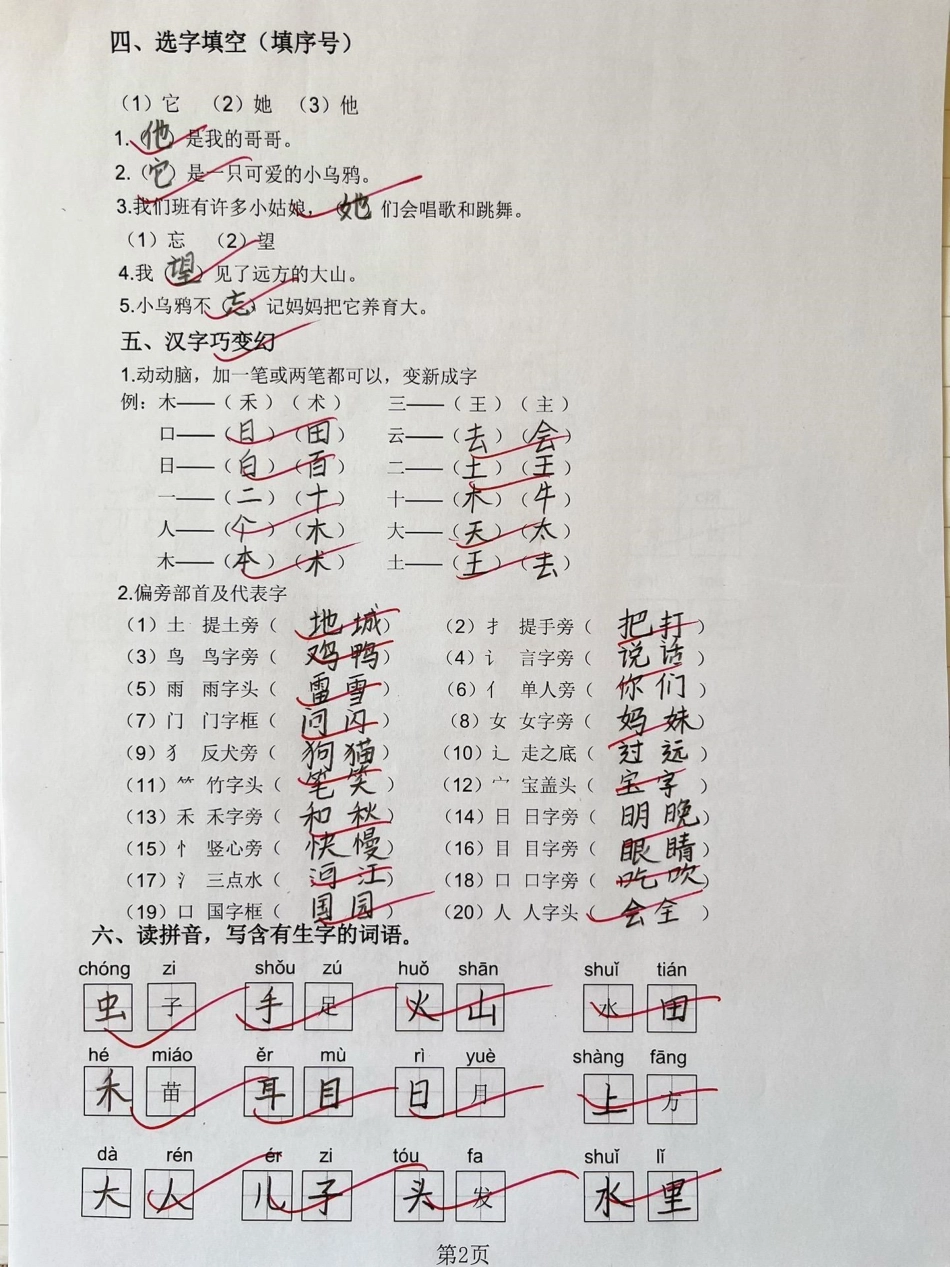 四、选字填空（填序号）
（1）它 （2）她 （3）他
1.（他）是我的哥哥。
2.（它）是一只可爱的小乌鸦。
3.我们班有许多小姑娘，（她）们会唱歌和跳舞。
（1）忘 （2）望
4.我（望）见了远方的大山。
5.小乌鸦不（忘）记妈妈把它养育大。
五、汉字巧变幻
1.动动脑，加一笔或两笔都可以，变新成字
例：木——（禾）（术） 三——（王）（主）
口——（日）（田） 云——（去）（会）
日——（白）（百） 二——（土）（王）
一——（二）（十） 十——（木）（牛）
人——（个）（木） 大——（天）（太）
木——（本）（术） 土——（王）（去）
2.偏旁部首及代表字
（1）土 提土旁（ 地 城 ） （2）扌 提手旁（ 把 打 ）
（3）鸟 鸟字旁（ 鸡 鸭 ） （4）讠 言字旁（ 说 话 ）
（5）雨 雨字头（ 雷 雪 ） （6）亻 单人旁（ 你 们 ）
（7）门 门字框（ 问 闪 ） （8）女 女字旁（ 妈 妹 ）
（9）犭 反犬旁（ 狗 猫 ） （10）辶 走之底（ 过 远 ）
（11）⺮ 竹字头（ 笔 笑 ） （12）宀 宝盖头（ 宝 字 ）
（13）禾 禾字旁（ 和 秋 ） （14）日 日字旁（ 明 晚 ）
（15）忄 竖心旁（ 快 慢 ） （16）目 目字旁（ 眼 睛 ）
（17）氵 三点水（ 河 江 ） （18）口 口字旁（ 吃 吹 ）
（19）口 国字框（ 国 园 ） （20）人 人字头（ 会 全 ）
六、读拼音，写含有生字的词语。
chóng zi shǒu zú huǒ shān shuǐ tián
虫 子 手 足 火 山 水 田
hé miáo ěr mù rì yuè shàng fāng
禾 苗 耳 目 日 月 上 方
dà rén ér zi tóu fa shuǐ lǐ
大 人 儿 子 头 发 水 里
第2页